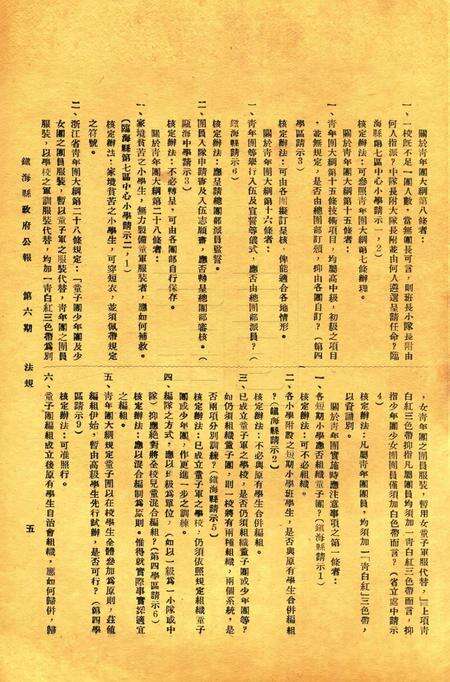 關於青年團大綱第八條者：
一、一校既不足一團人數，當無團長可言，則班長小隊長附由
何人指派？中隊長附大隊長附應由何人遴選呈請任命？（臨
海縣第七區中心小學請示一，2）
核定辦法：可參照青年團大綱第七條辦理。
關於青年團大綱第十五條者：
一、青年團大綱第十五條技術項目，均屬高中級，初級之項目
並無規定，是否由總團部訂頒，抑由各團自訂？（第四
學區請示3）
核定辦法：可由各團擬訂呈核，俾能適合各地情形。
關於青年團大綱第十六條者：
一、青年團等舉行入伍及宣誓等儀式，應否由總團部派員？（
鎮海縣請示6）
核定辦法：應呈請總團部派員監督。
二、團員入隊申請書及入伍志願書，應否轉呈總團部審核。（
甌海中學請示3）
核定辦法：不必轉呈，可由各團部自行保存。
關於青年團大綱第二十八條者：
一、家境貧苦之小學生，無力製備童軍服裝者，應如何補救。
（臨海縣第七區中心小學請示二，1）
核定辦法：家境貧苦之小學生，可穿短衣，並須佩帶規定
之符號。
二、浙江省青年團大綱第二十八條規定：「童子團少年團及少
女團之團員服裝，暫以童子軍之服裝代替，青年團之團員
服裝，以學校之軍訓服裝代替，均加一青白紅三色帶爲別
，女青年團之團員服裝，暫用女童子軍服代替，」其上項青
白紅三色帶抑指凡屬團員均須加一青白紅三色帶而言，抑
指少年團少女團團員僅須加白色帶而言？（省立處中請示
4）
核定辦法：凡屬青年團團員，均須加一「青白紅」三色帶，
以資識別。
關於青年團實施時應注意事項之第一條者：
一、各短期小學應否組織童子團？（鎮海縣請示1）
核定辦法：可不必組織。
二、各小學附設之短期小班學生，是否與原有學生合併編組
？（鎮海縣請示2）
核定辦法：不必與原有學生合併編組。
三、已成立童子軍之學校，是否仍須組織童子團或少年團等？
如仍須組織童子團，則一校將有兩種組織，兩個系統，是
否兩項分別訓練？（鎮海縣請示5）
核定辦法：已成立童子軍之學校，仍須依照規定組織童子
團或少年團，作更進一步之訓練。
四、編隊之方式，應以年級爲單位，（如以一級爲一小隊或中
隊）抑應絕對將全校兒童混合編組？（第四學區請示6）
核定辦法：應以混合編制爲原則。惟得就實際事實擇適宜
之編組。
五、青年團大綱規定童子團以在校學生全體參加爲原則，茲值
編組伊始，暫由高級學生先行試辦，是否可行？（第四學
區請示9）
核定辦法：可准照行。
六、童子團編組成立後原有學生自治會組織，應如何歸併，歸
鎮海縣政府公報　第六期　法規　五